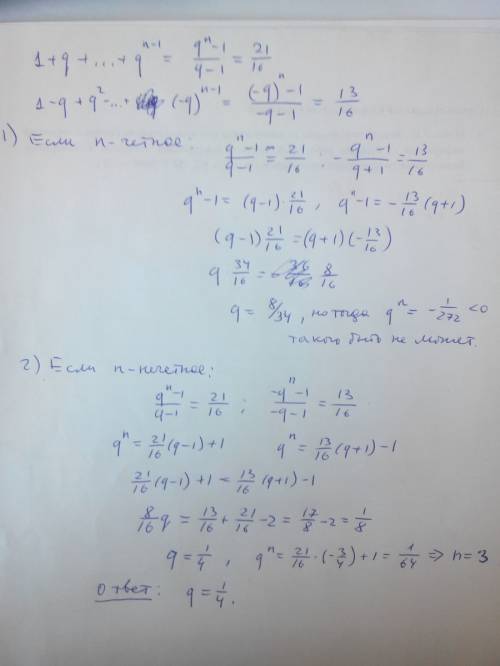 1+q+...+q^{n-1} = \frac{q^n-1}{q-1} = \frac{21}{16}
1-q+q^2-...+ (-q)^{n-1} = \frac{(-q)^n-1}{-q-1} = \frac{13}{16}
1) Если n-четное: \frac{q^n-1}{q-1} = \frac{21}{16} ; -\frac{q^n-1}{q+1} = \frac{13}{16}
q^n-1 = (q-1)·\frac{21}{16} , q^n-1 = -\frac{13}{16}(q+1)
(q-1)\frac{21}{16} = (q+1)(-\frac{13}{16})
q \frac{34}{16} = \frac{8}{16}
q = 8/34 , но тогда q^n = -\frac{1}{272} < 0
такого быть не может.
2) Если n-нечетное:
\frac{q^n-1}{q-1} = \frac{21}{16} ; \frac{-q^n-1}{-q-1} = \frac{13}{16}
q^n = \frac{21}{16}(q-1)+1 q^n = \frac{13}{16}(q+1)-1
\frac{21}{16}(q-1)+1 = \frac{13}{16}(q+1)-1
\frac{8}{16}q = \frac{13}{16} + \frac{21}{16} - 2 = \frac{17}{8} - 2 = \frac{1}{8}
q = \frac{1}{4} , q^n = \frac{21}{16}·(-\frac{3}{4})+1 = \frac{1}{64} ⇒ n=3
Ответ: q = \frac{1}{4}.